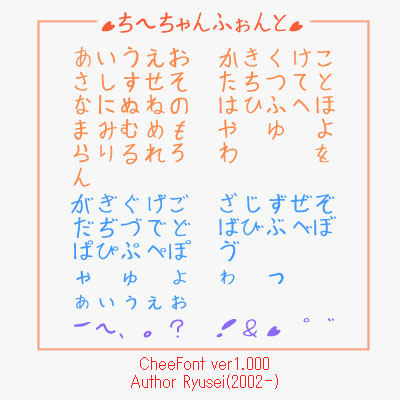 ち〜ちゃんふぉんと
あいうえお かきくけこ
さしすせそ たちつてと
なにぬねの はひふへほ
まみむめも やゆよ
らりるれろ わを
ん
がぎぐげご ざじずぜぞ
だぢづでど ばびぶべぼ
ぱぴぷぺぽ ゔ
ゃゅょ ゎっ
ぁぃぅぇぉ
ー〜、。? !& ゜゛
CheeFont ver1.000
Author Ryusei(2002-)